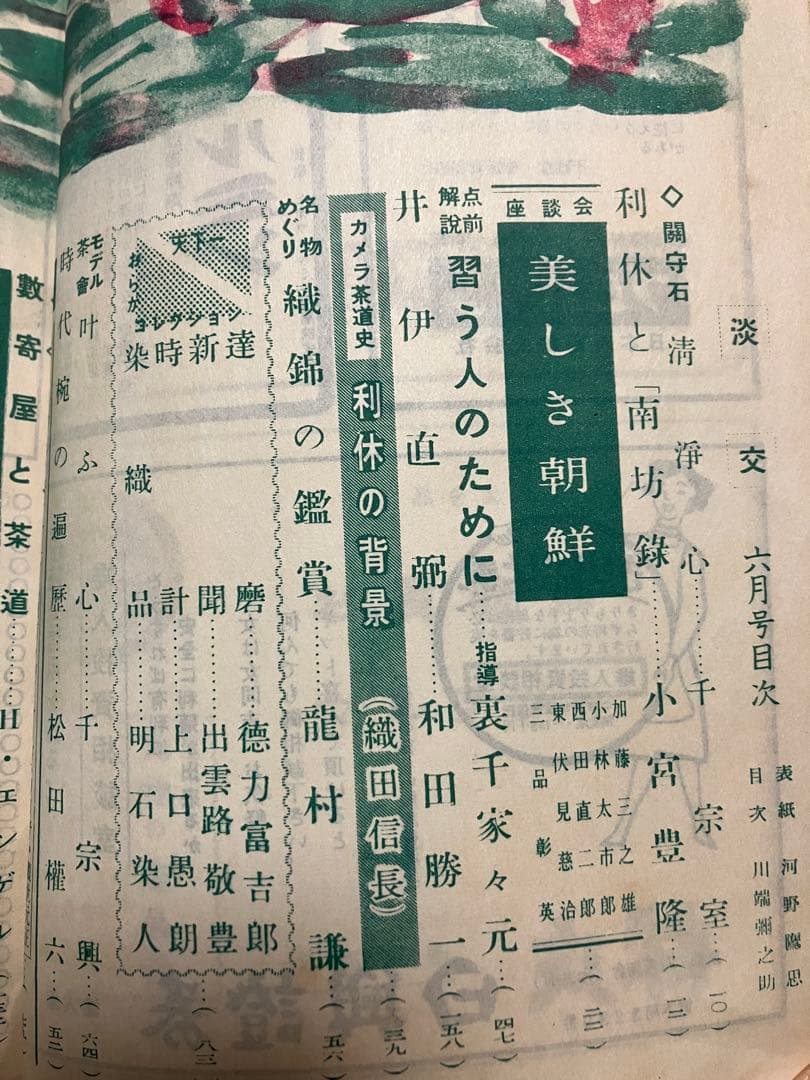 淡交 六月号目次
表紙 河野鷹思
目次 川端彌之助
◇關守石 淸淨心……千宗室…(一〇)
利休と「南坊錄」……小宮豊隆…(一二)
座談会
美しき朝鮮
加藤三之雄
小林太市郎
西田直二郎
東伏見慈治
三品彰英
…(二二)
点前解説 習う人のために……指導 裏千家々元…(四七)
井伊直弼……和田勝一…(一五八)
カメラ茶道史 利休の背景(織田信長)…(三九)
名物めぐり 織錦の鑑賞……龍村謙…(五六)
天下一
おらが
コレクション
達磨……德力富吉郎
新聞……出雲路敬豊
時計……上口愚朗
染織品……明石染人
…(八三)
モデル茶會 叶ふ心……千宗興…(六四)
時代椀の遍歷……松田權六…(五二)
數寄屋と茶道……H・エンゲル